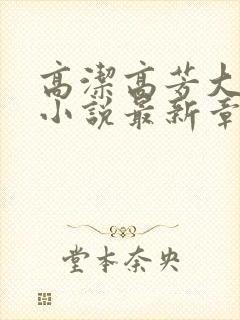 高潔高芳大
小說最新章
堂本奈央